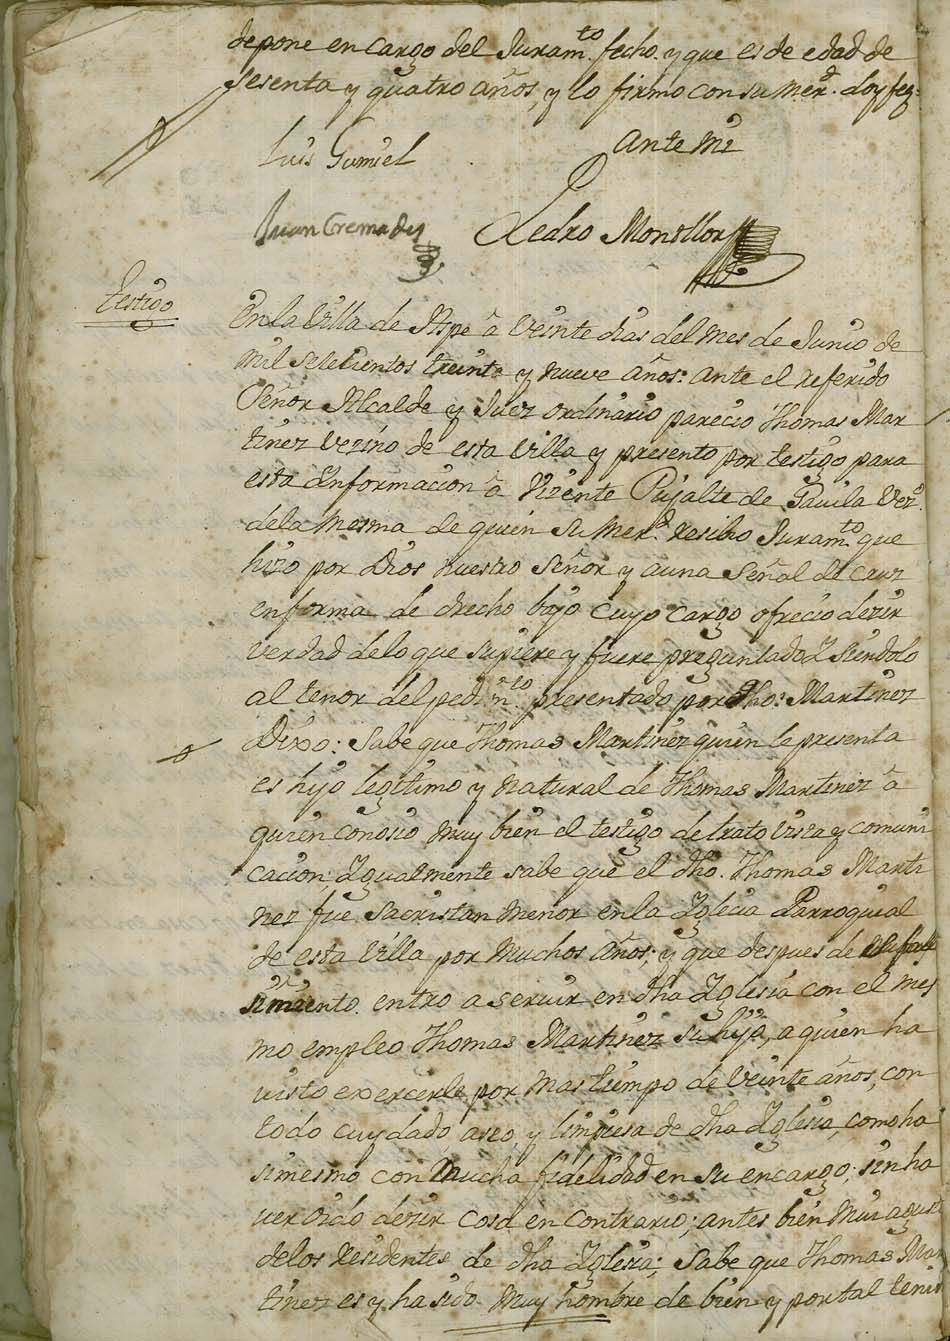 depone en cargo del Juram.to fecho. y que es de edad de
sesenta y quatro años, y lo firmo con su Merd. doy fee=
Luis Gumiel
Ante Mi
Juan Cremades
Pedro Monllor
testigo
En la Villa de Aspe â Veinte dias del Mes de Junio de
Mil Setecientos treinta y nueve Años: Ante el referido
Señor Alcalde y Juez ordinario parecio Thomas Mar
tinez Vezino de esta Villa y presento por testigo para
esta Informacion â Vizente Pujalte de Gavila Vez.º
dela Mesma de quien su Merd. resibio Juram.to que
hizo por Dios nuestro Señor y auna Señal de Cruz
en forma de drecho bajo cuyo cargo ofrecio dezir
verdad delo que supiere y fuere preguntado Y siendolo
al tenor del pedim.to presentado por dho: Martinez
Dixo: Sabe que Thomas Martinez quien le presenta
es hijo legitimo y natural de Thomas Martinez â
quien conosio Muy bien el testigo de trato vista y comuni
cacion; Igualmente sabe que el dho. Thomas Marti
nez fue Sacristan Menor en la Iglecia Parroquial
de esta Villa por Muchos Años; y que despues de su falle
simiento. entro a servir en dha Iglesia con el mes
mo empleo Thomas Martinez su hijo, a quien ha
visto exercerle por mas tiempo de Veinte años, con
todo cuydado aseo, y limpiesa de dha Iglesia, como ha
simesmo con Mucha fidelidad en su encargo; sin ha
ver oido dezir cosa en contrario; antes bien Mui agusto
delos Residentes de dha Iglesia; Sabe que Thomas Mar
tinez es y ha sido Muy hombre de bien y por tal tenido